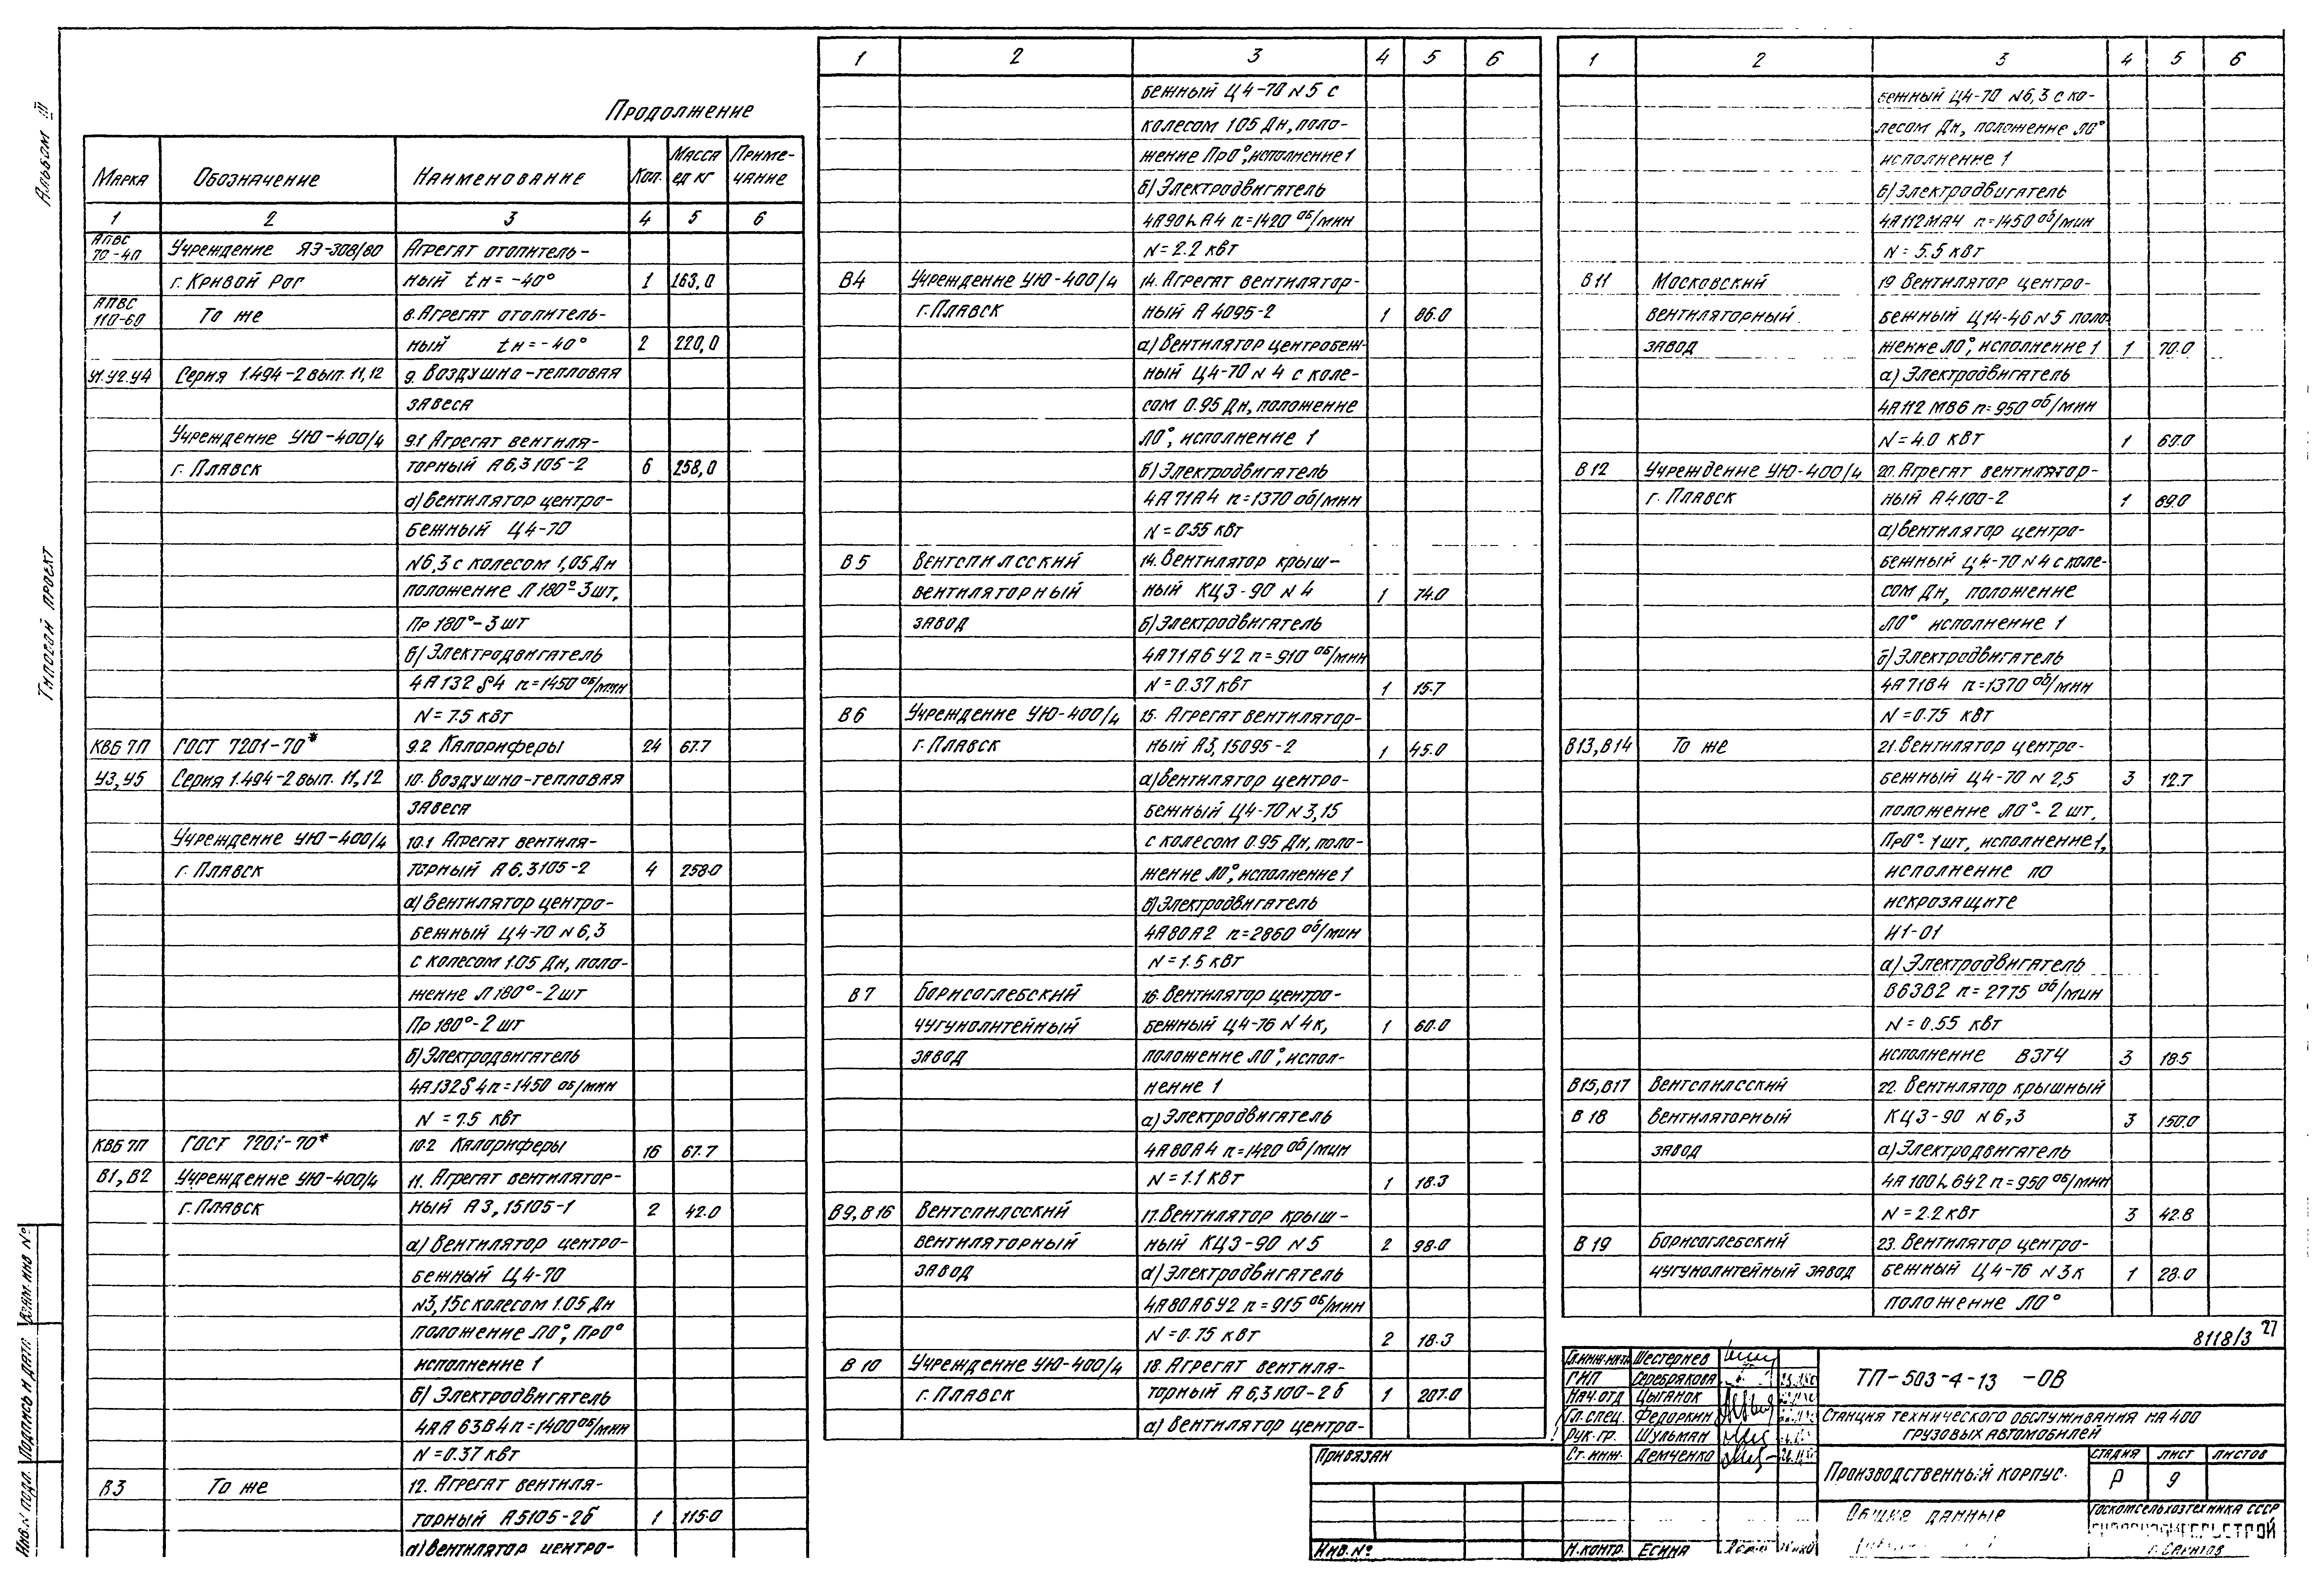 Альбом III
Типовой проект
Продолжение
Марка Обозначение Наименование Кол. Масса ед кг Примечание
1 2 3 4 5 6
АПВС 70-40 Учреждение ЯЭ-308/80 Агрегат отопитель-
г. Кривой Рог ный tн = -40° 1 163,0
АПВС 110-60 То же 8. Агрегат отопитель-
ный tн = -40° 2 220,0
У1.У2.У4 Серия 1.494-2 вып. 11,12 9. Воздушно-тепловая
завеса
Учреждение УЮ-400/4 9.1 Агрегат вентиля-
г. Плавск торный А6,3105-2 6 258,0
а) вентилятор центро-
бежный Ц4-70
N6,3 с колесом 1,05 Дн
положение Л 180°-3 шт.
Пр 180°-3 шт
б) Электродвигатель
4А132 S4 n=1450 об/мин
N = 7.5 кВт
КВБ 7П ГОСТ 7201-70* 9.2 Калориферы 24 67.7
У3, У5 Серия 1.494-2 вып. 11,12 10. Воздушно-тепловая
завеса
Учреждение УЮ-400/4 10.1 Агрегат вентиля-
г. Плавск торный А6,3105-2 4 258.0
а) Вентилятор центро-
бежный Ц4-70 N6,3
с колесом 1.05 Дн, поло-
жение Л 180°-2 шт
Пр 180°-2 шт
б) Электродвигатель
4А132S4 n=1450 об/мин
N = 7.5 кВт
КВБ 7П ГОСТ 7201-70* 10.2 Калориферы 16 67.7
В1, В2 Учреждение УЮ-400/4 11. Агрегат вентилятор-
г. Плавск ный А3,15105-1 2 42.0
а) Вентилятор центро-
бежный Ц4-70
N3,15 с колесом 1.05 Дн
положение Л0°, Пр0°
исполнение 1
б) Электродвигатель
4АА 63В4 n=1400 об/мин
N=0.37 кВт
В3 То же 12. Агрегат вентиля-
торный А5105-2б 1 115.0
а) вентилятор центро-
1 2 3 4 5 6
бежный Ц4-70 N5 с
колесом 105 Дн, поло-
жение Пр0°, исполнение 1
б) Электродвигатель
4А90LА4 n=1420 об/мин
N=2.2 кВт
В4 Учреждение УЮ-400/4 14. Агрегат вентилятор-
г. Плавск ный А 4095-2 1 86.0
а) Вентилятор центробеж-
ный Ц4-70 N 4 с коле-
сом 0.95 Дн, положение
Л0°, исполнение 1
б) Электродвигатель
4А71А4 n=1370 об/мин
N=0.55 кВт
В5 Вентспилсский 14. Вентилятор крыш-
вентиляторный ный КЦ3-90 N4 1 74.0
завод б) Электродвигатель
4А71А6У2 n=910 об/мин
N=0.37 кВт 1 15.7
В6 Учреждение УЮ-400/4 15. Агрегат вентилятор-
г. Плавск ный А3,15095-2 1 45.0
а) Вентилятор центро-
бежный Ц4-70 N3,15
с колесом 0.95 Дн, поло-
жение Л0°, исполнение 1
б) Электродвигатель
4А80А2 n=2860 об/мин
N=1.5 кВт
В7 Борисоглебский 16. Вентилятор центро-
чугунолитейный бежный Ц4-76 N4к, 1 60.0
завод положение Л0°, испол-
нение 1
а) Электродвигатель
4А80А4 n=1420 об/мин
N=1.1 кВт 1 18.3
В9, В16 Вентспилсский 17. Вентилятор крыш-
вентиляторный ный КЦ3-90 N5 2 98.0
завод а) Электродвигатель
4А80А6У2 n=915 об/мин
N=0.75 кВт 2 18.3
В10 Учреждение УЮ-400/4 18. Агрегат вентиля-
г. Плавск торный А6,3100-2б 1 207.0
а) Вентилятор центро-
1 2 3 4 5 6
бежный Ц4-70 N6,3 с ко-
лесом Дн, положение Л0°
исполнение 1
б) Электродвигатель
4А112МА4 n=1450 об/мин
N=5.5 кВт
В11 Московский 19 Вентилятор центро-
вентиляторный бежный Ц14-46 N5 поло
завод жение Л0°, исполнение 1 1 70.0
а) Электродвигатель
4А112 МВ6 n=950 об/мин
N=4.0 кВт 1
В12 Учреждение УЮ-400/4 20. Агрегат вентилятор-
г. Плавск ный А4100-2 1 69.0
а) вентилятор центро-
бежный Ц4-70 N4 с коле-
сом Дн, положение
Л0° исполнение 1
б) Электродвигатель
4А71В4 n=1370 об/мин
N=0.75 кВт
В13, В14 То же 21. Вентилятор центро-
бежный Ц4-70 N 2,5 3 12.7
положение Л0°-2 шт.
Пр0°-1 шт, исполнение 1,
исполнение по
искрозащите
И1-01
а) Электродвигатель
В63В2 n=2775 об/мин
N=0.55 кВт
исполнение ВЗТ4 3 18.5
В15, В17 Вентспилсский 22. Вентилятор крышный
В18 вентиляторный КЦ3-90 N6,3 3 150.0
завод а) Электродвигатель
4А100L6У2 n=950 об/мин
N=2.2 кВт 3 42.8
В19 Борисоглебский 23. Вентилятор центро-
чугунолитейный завод бежный Ц4-76 N3к 1 28.0
положение Л0°
8118/3 27
Гл.инж.ин-та Шестернев
ГИП Серебрякова
Нач.отд Цыганок
Гл.спец. Федоркин
Рук. гр. Шульман
Ст. инж. Демченко
Н.контр. Есина
ТП-503-4-13 -ОВ
Станция технического обслуживания на 400
грузовых автомобилей
Производственный корпус.
Стадия Лист Листов
Р 9
Общие данные
Госкомсельхозтехника СССР
г. Саратов
Привязан
Инв. №
Инв.N подл. Подпись и дата Взам.инв №